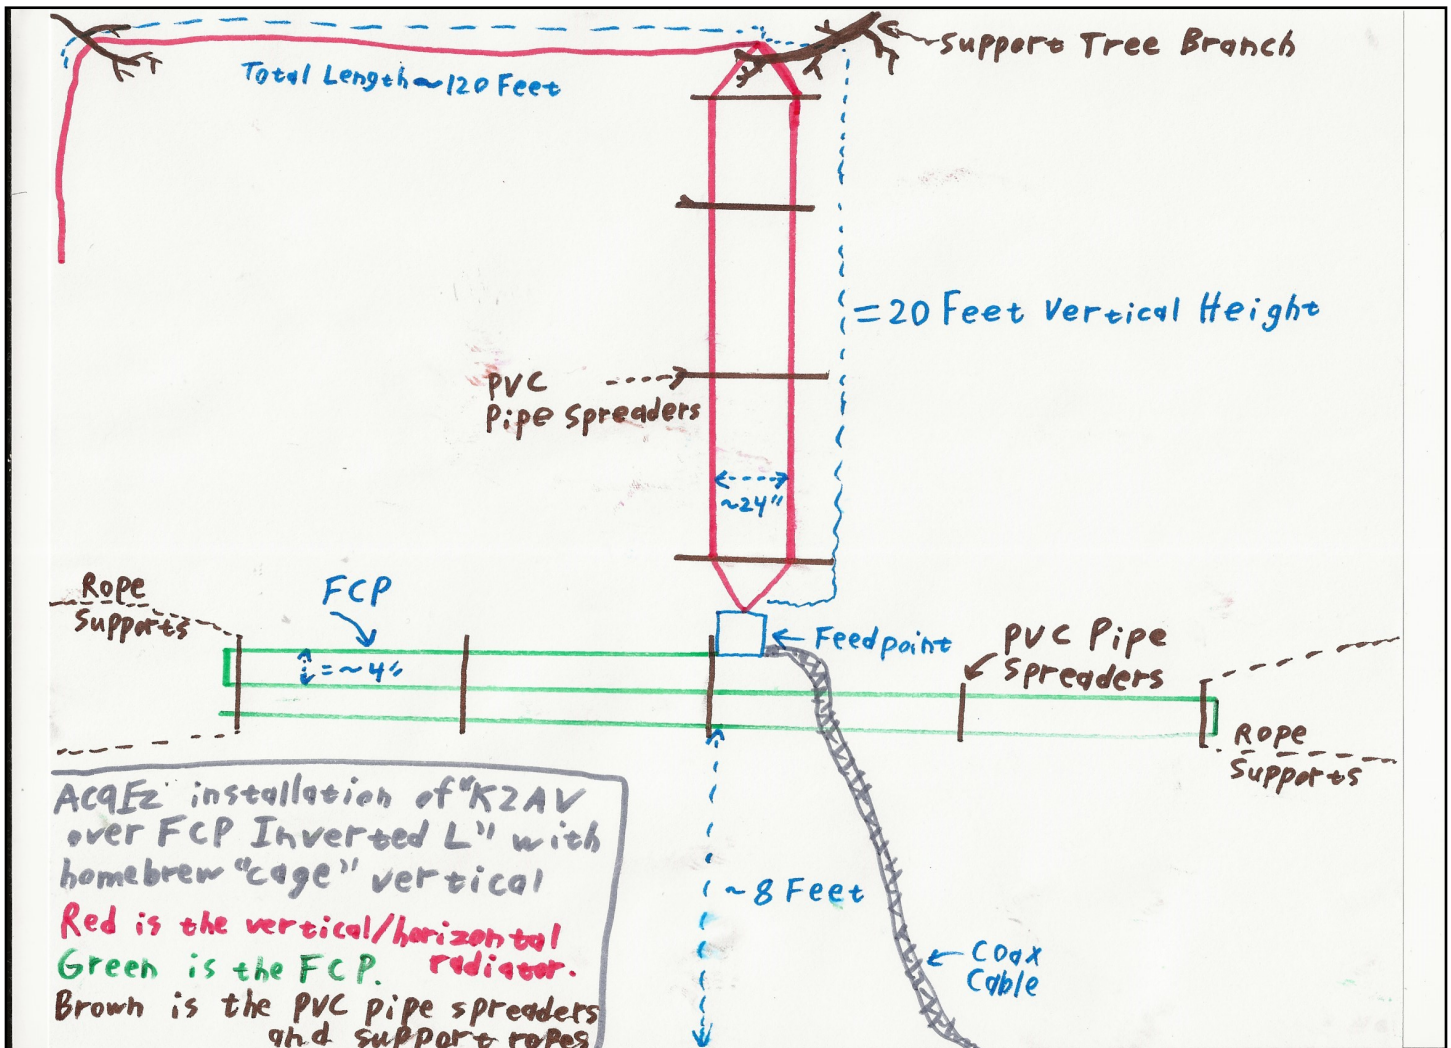 Support Tree Branch
Total Length ~ 120 Feet
= 20 Feet Vertical Height
PVC
Pipe Spreaders
~24"
Rope
Supports
FCP
= ~4"
Feedpoint
PVC Pipe
Spreaders
Rope
Supports
AC9EZ installation of "K2AV
over FCP Inverted L" with
homebrew "cage" vertical
Red is the vertical/horizontal
radiator.
Green is the FCP.
Brown is the PVC pipe spreaders
and support ropes
~8 Feet
Coax
Cable